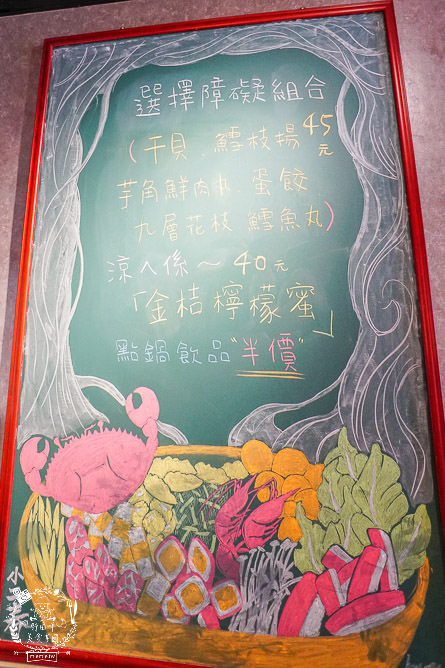 選擇障礙組合
(干貝.鱈枝揚 45元
芋角鮮肉丸.蛋餃
九層花枝.鱈魚丸)
涼ㄟ係～40元
「金桔檸檬蜜」
點鍋飲品"半價"